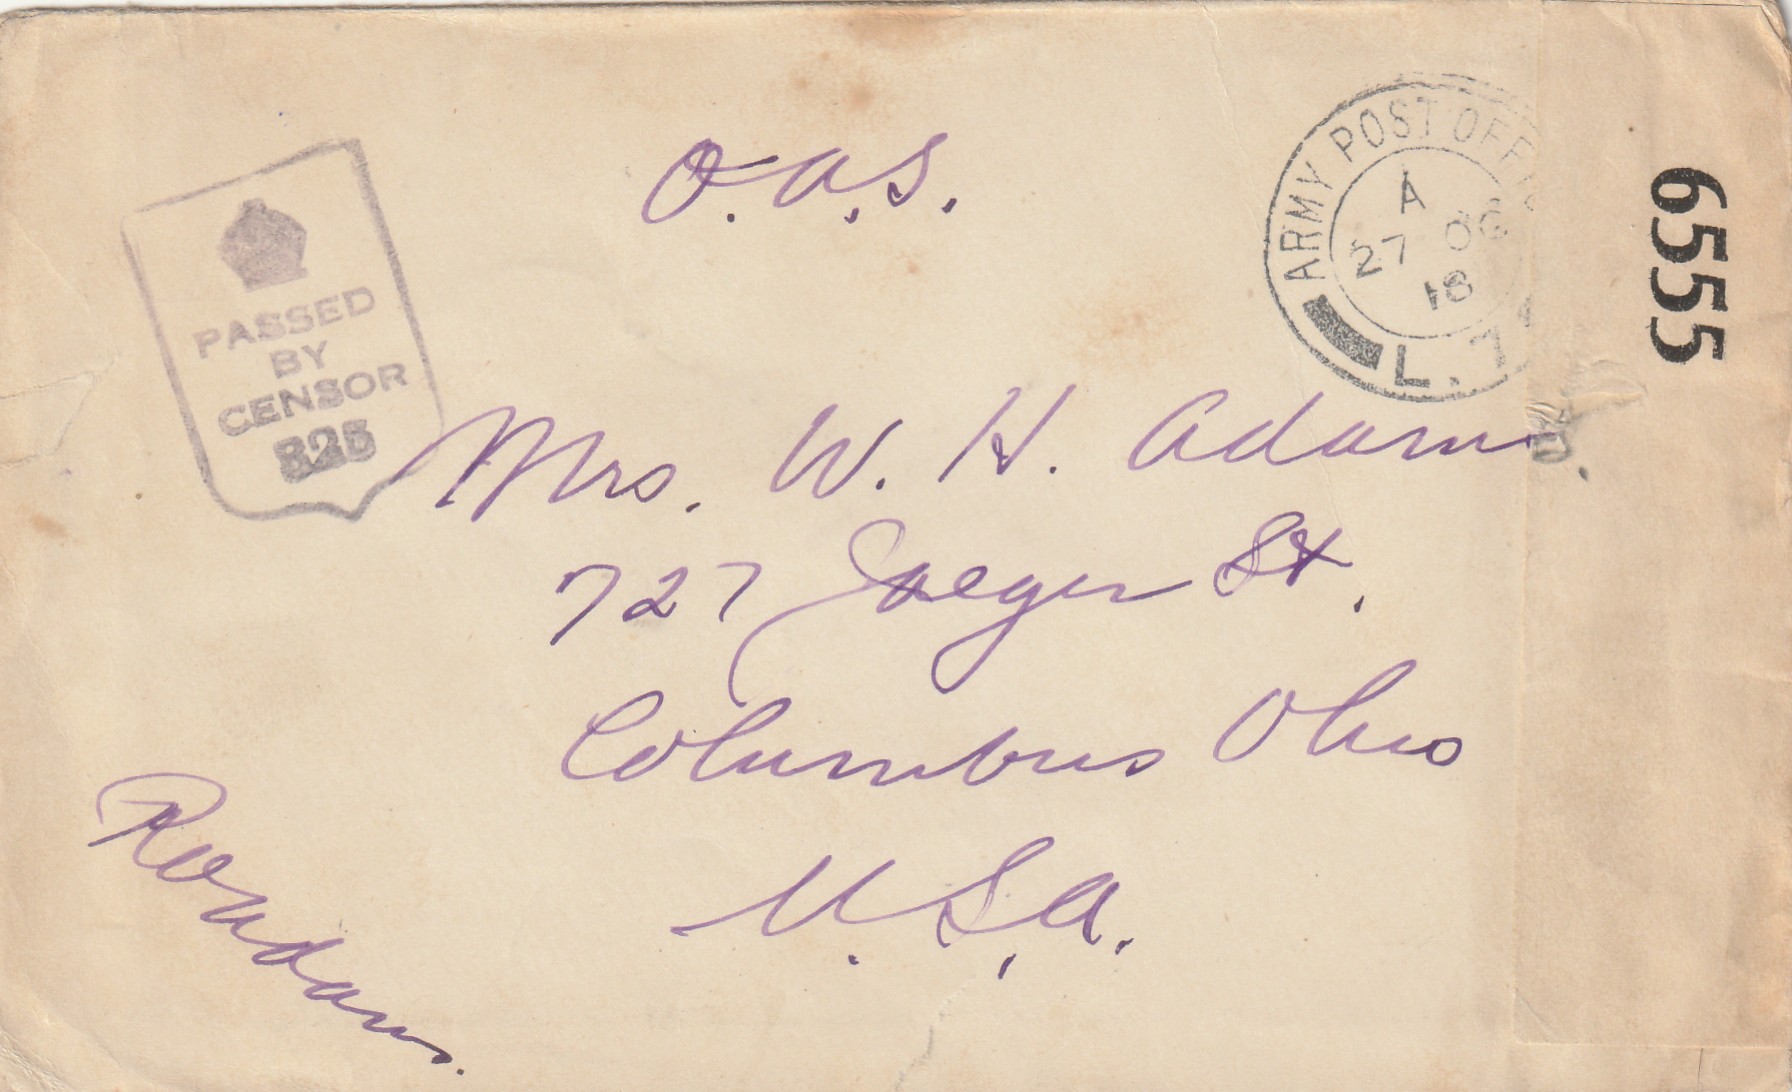 O.A.S.
ARMY POST OFFI
A
27 OC
18
L. 7
6555
PASSED
BY
CENSOR
Mrs. W. H. Adams.
727 Jaeger St.
Columbus Ohio
U.S.A.
Adams.